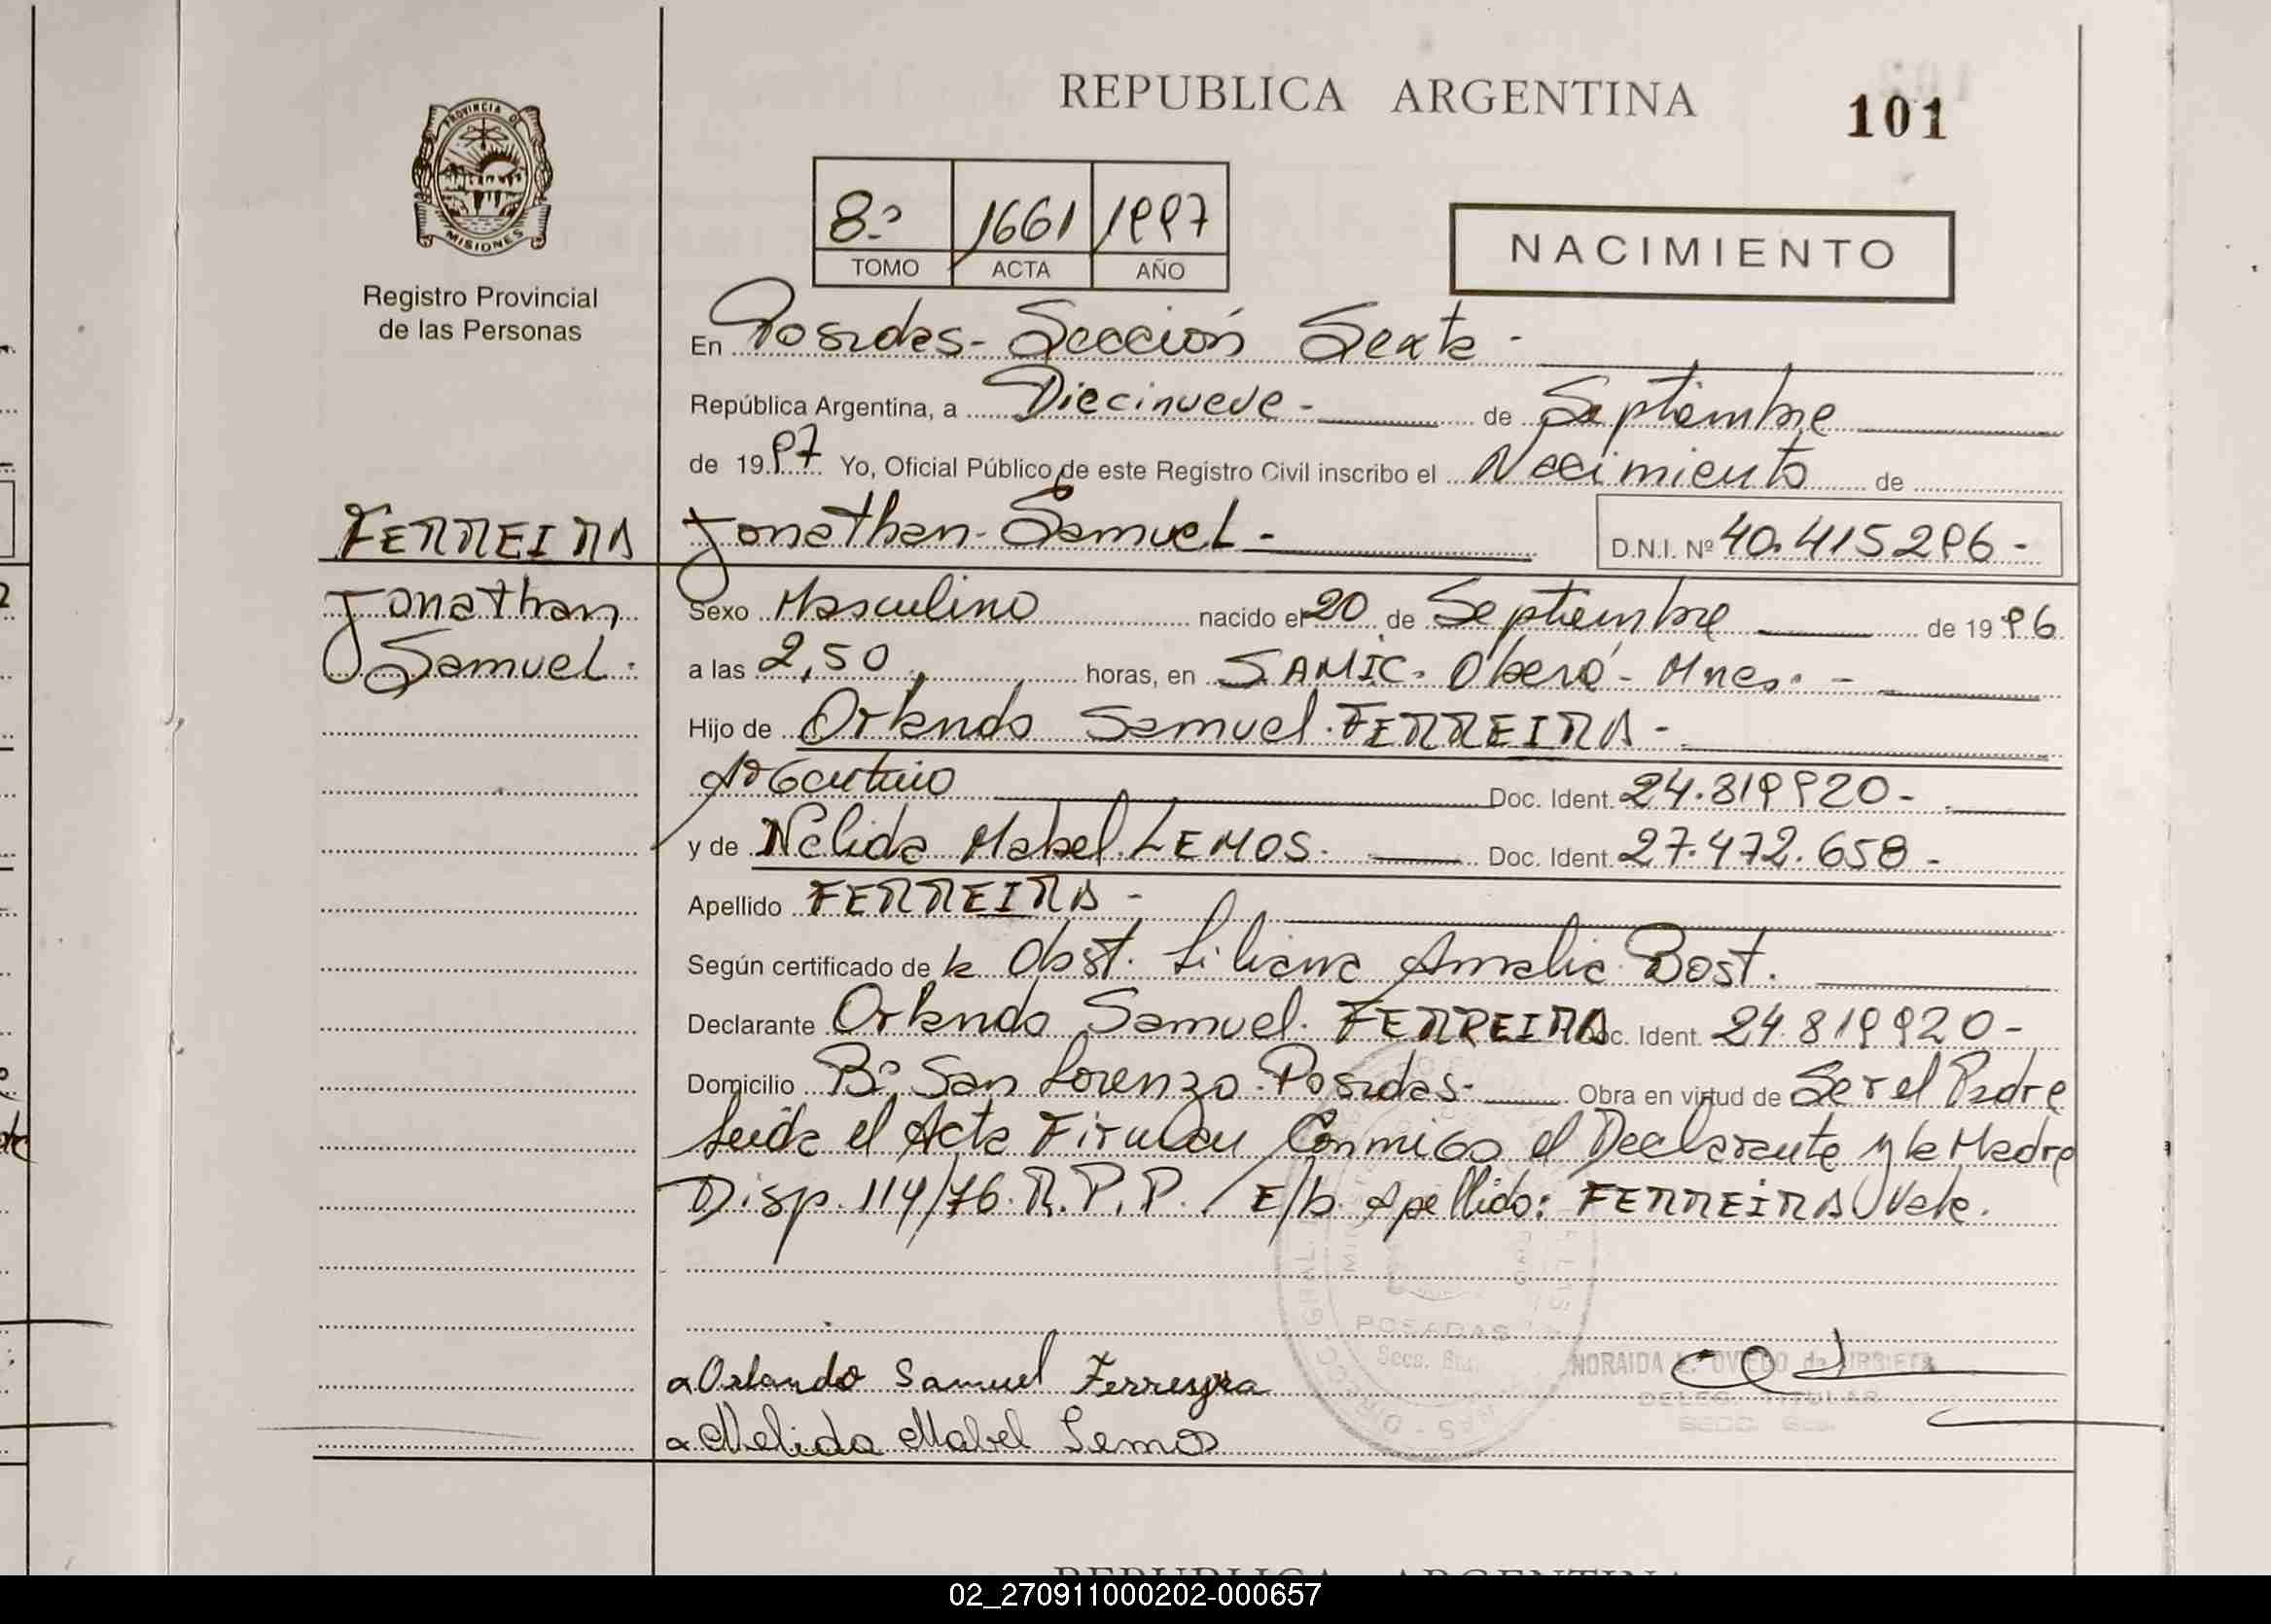 REPUBLICA ARGENTINA
101
PROVINCIA DE
MISIONES
Registro Provincial
de las Personas
8º 1661 1997
TOMO ACTA AÑO
NACIMIENTO
En Posadas - Sección Sexta -
República Argentina, a Diecinueve - de Septiembre
de 1997 Yo, Oficial Público de este Registro Civil inscribo el Nacimiento de
FERREIRA Jonathan Samuel - D.N.I. Nº 40.415296 -
Jonathan
Samuel.
Sexo Masculino nacido el 20 de Septiembre de 1996
a las 2,50 horas, en SAMIC. Oberá - Mnes. -
Hijo de Orlando Samuel FERREIRA -
Argentino Doc. Ident. 24.819920 -
y de Nélida Mabel LEMOS. Doc. Ident. 27.472.658 -
Apellido FERREIRA -
Según certificado de la Obst. Liliana Amalia Bost.
Declarante Orlando Samuel FERREIRA Doc. Ident. 24.819920 -
Domicilio Bº San Lorenzo - Posadas - Obra en virtud de Ser el Padre
Leída el Acta Firman Conmigo el Declarante y la Madre
Disp. 114/76. R.P.P. / E/b. Apellido: FERREIRA Vale.
POSADAS
Orlando Samuel Ferreyra
NORAIDA OVIEDO de URBIETA
DELEG. TITULAR
Nelida Mabel Lemos
REPUBLICA ARGENTINA
02_270911000202-000657